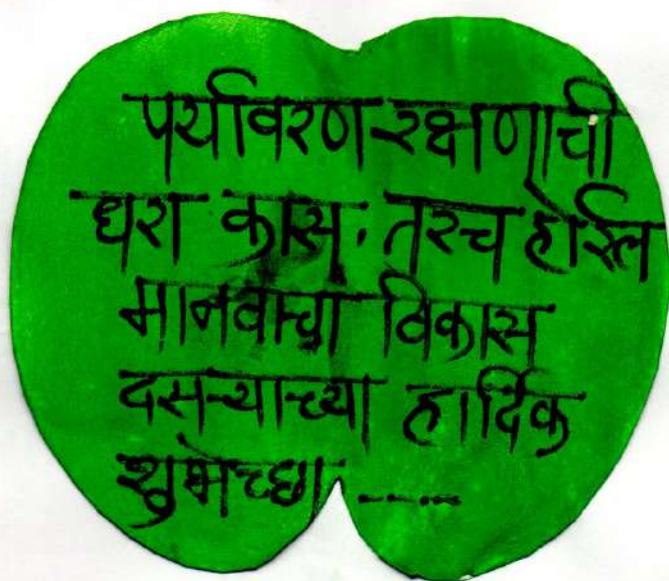 पर्यावरण रक्षणाची
धरा कास, तरच होईल
मानवाचा विकास
दसऱ्याच्या हार्दिक
शुभेच्छा -----